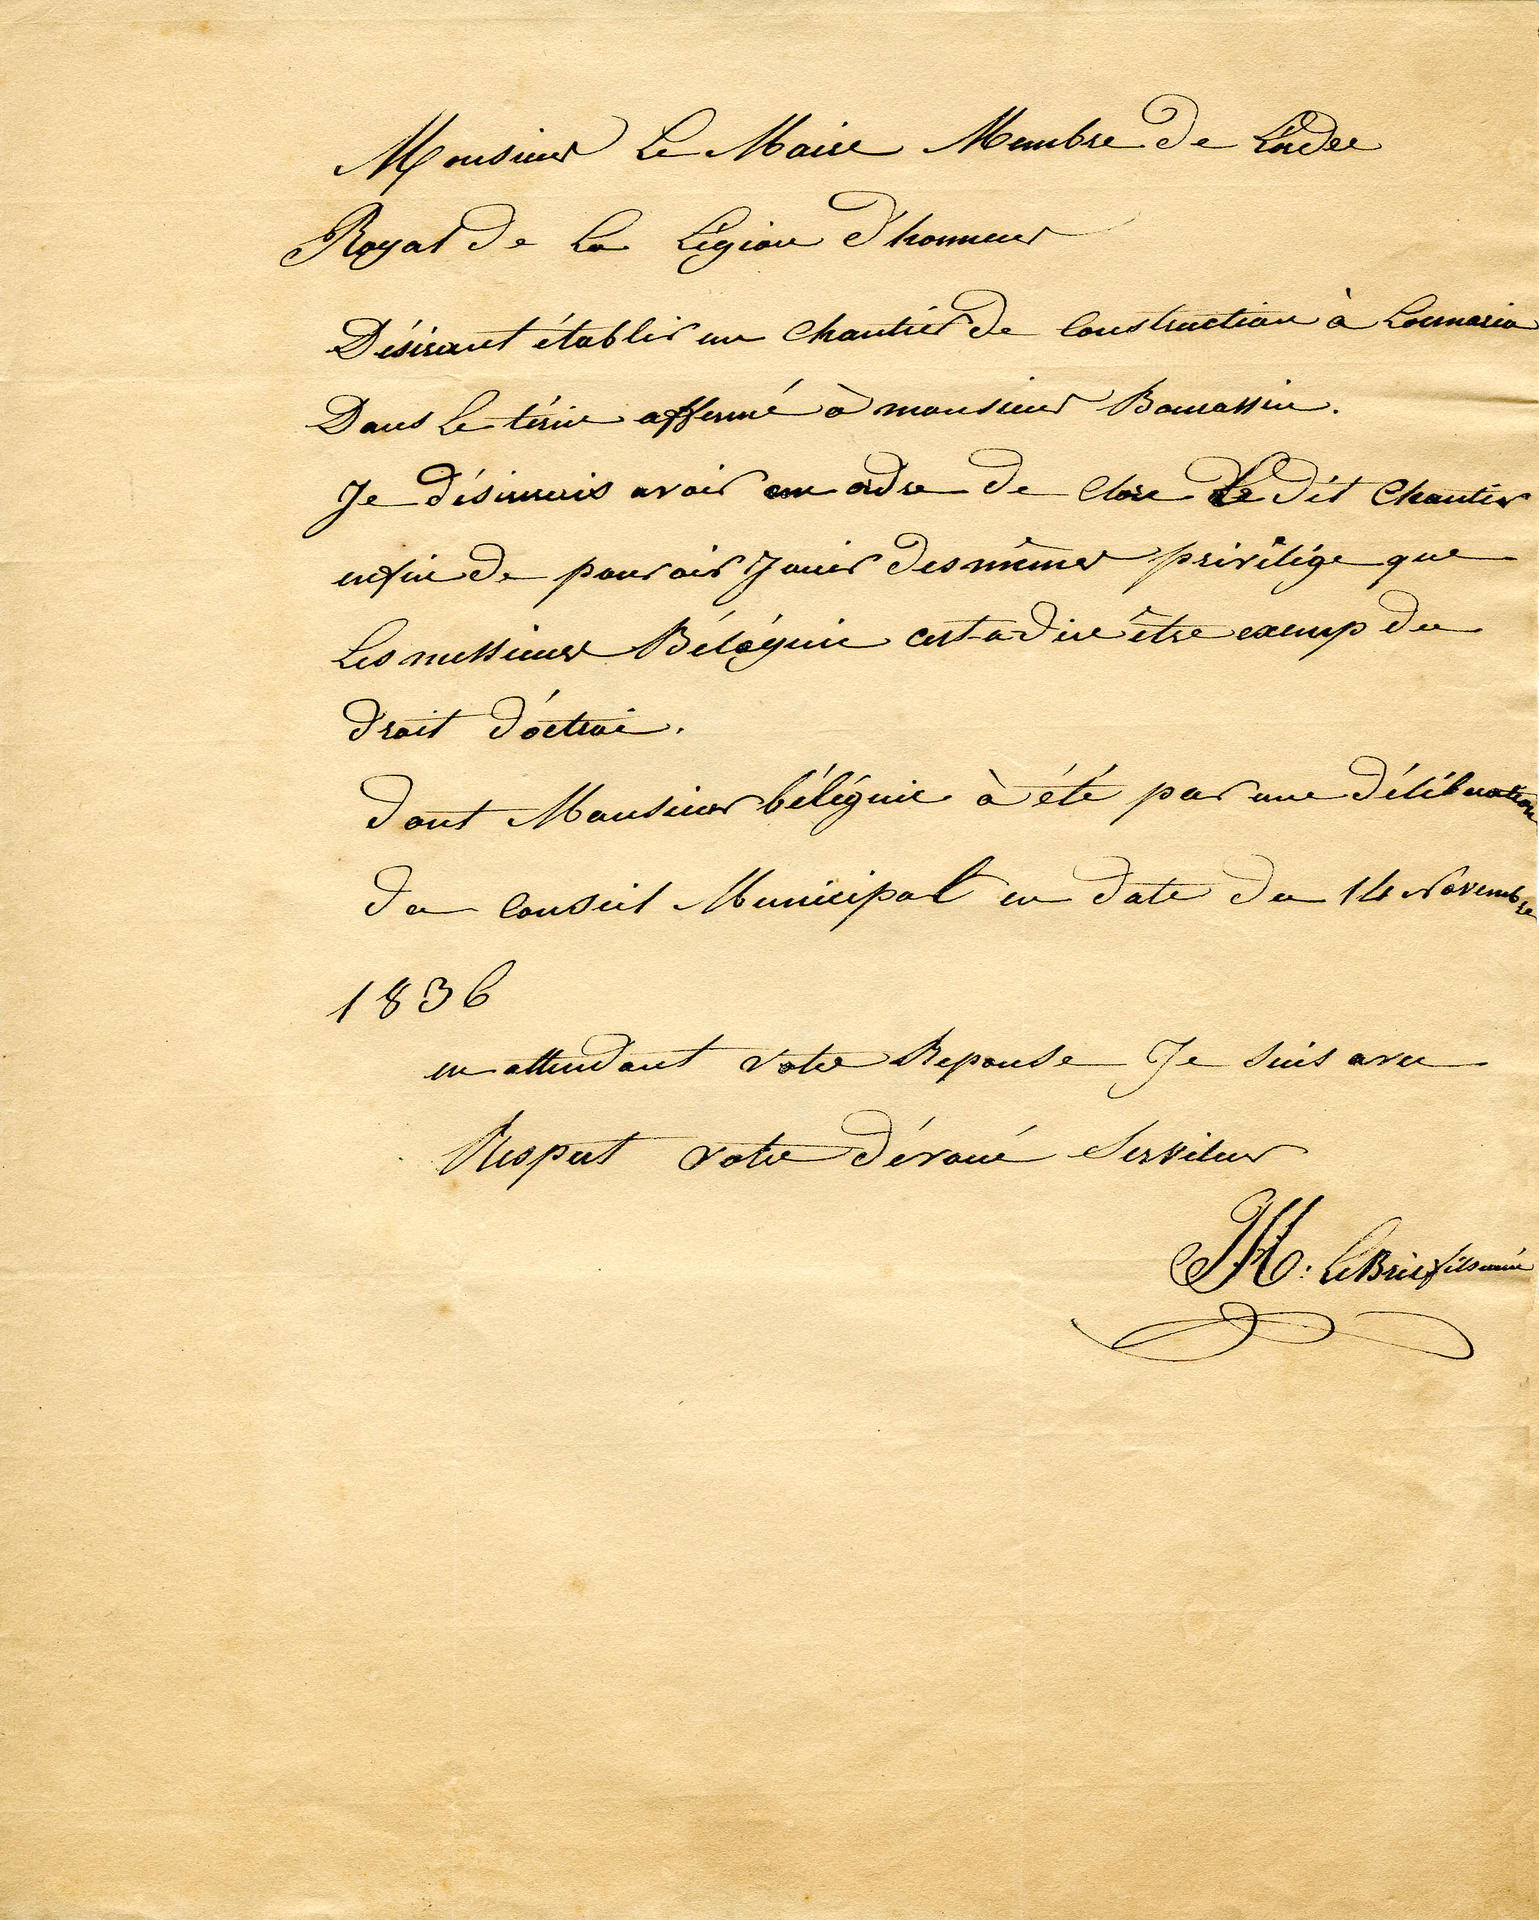 Monsieur Le Maire Membre de L'ordre
Royal de La Légion d'honneur
Désirant établir un Chantier de Construction à Locmaria
Dans Le térin affermé à monsieur Bourassin.
Je désirerais avoir un ordre de Clore Le dit Chantier
enfin de pouvoir Jouir des mêmes privilége que
Les messieurs Béléguic cest a dire être exemp du
droit d'octroi.
dont Monsieur béléguic à été par une délibération
du Conseil Municipal en date du 14 Novembre
1836
en attendant votre Reponse Je suis avec
Respect votre dévoué Serviteur
H: Le Briex fils ainé